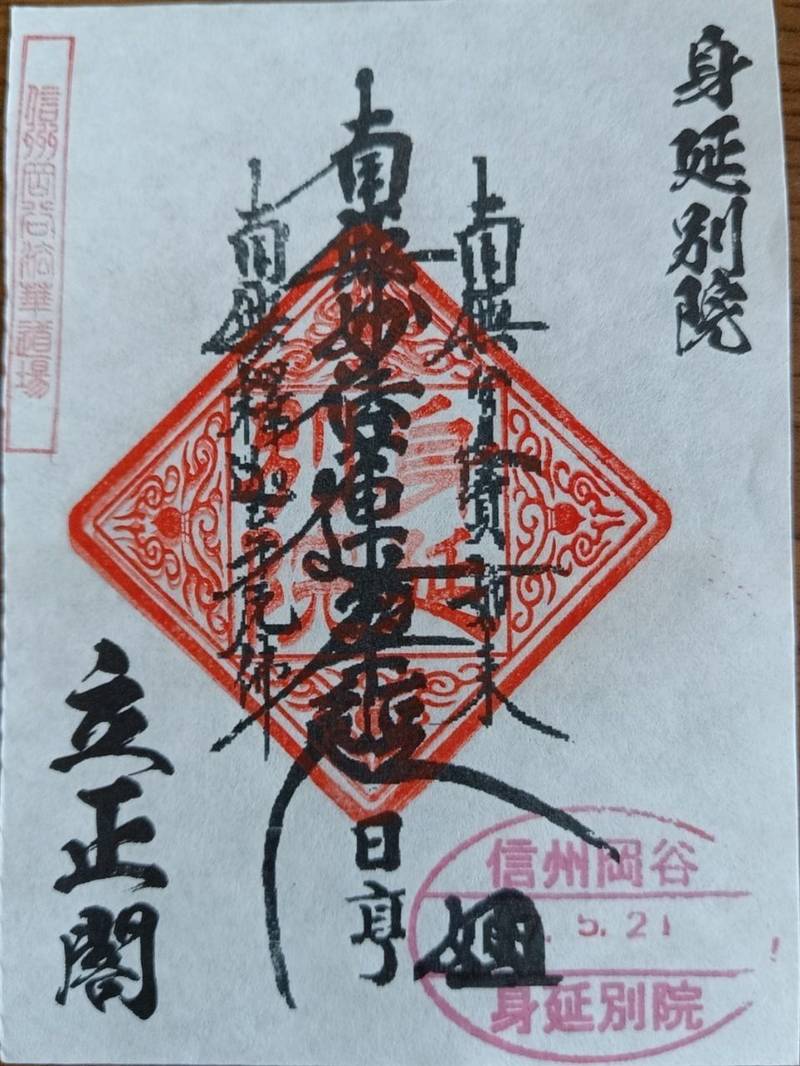 身延別院
南無
寶如来
南無妙法蓮華經
日亨
南無釋迦牟尼佛
立正閣
信州岡谷法華道場
身延
信州岡谷
. 5. 21
身延別院